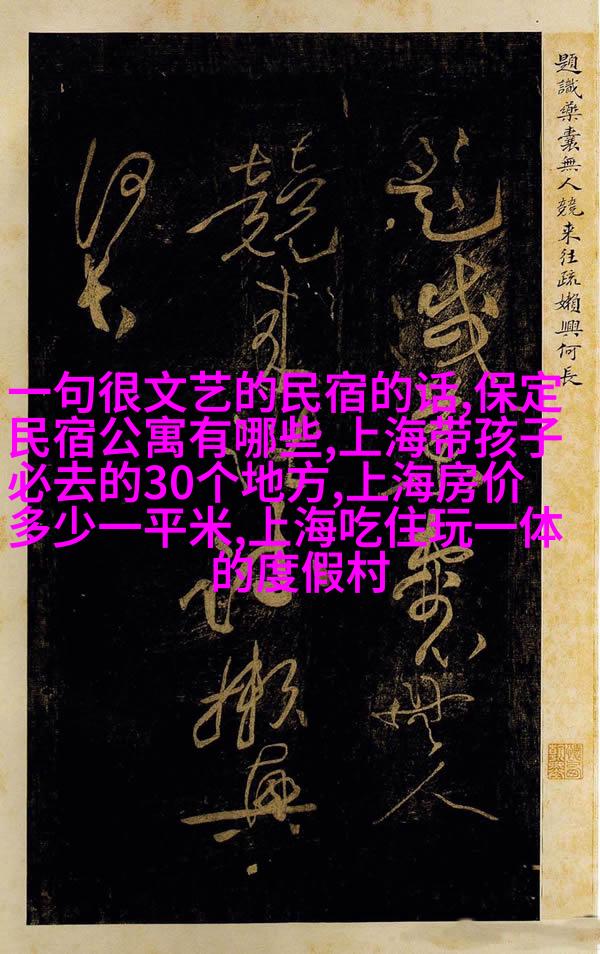 題識藥囊無人競来往疏嬾興何長
題識藥囊無人
競来往疏嬾興
何長
一句很文艺的民宿的话,保定
民宿公寓有哪些,上海带孩子
必去的30个地方,上海房价
多少一平米,上海吃住玩一体
的度假村